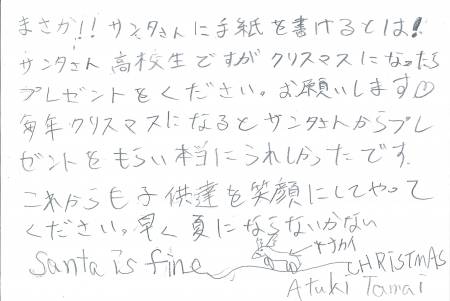 まさか!! サンタさんに手紙を書けるとは!
サンタさん高校生ですがクリスマスになったら
プレゼントをください。お願いします♡
毎年クリスマスになるとサンタさんからプレ
ゼントをもらい本当にうれしかったです.
これからも子供達を笑顔にしてやって
ください。早く夏にならないかない
トナカイ
Santa is fine
CHRISTMAS
Atuki Tamai